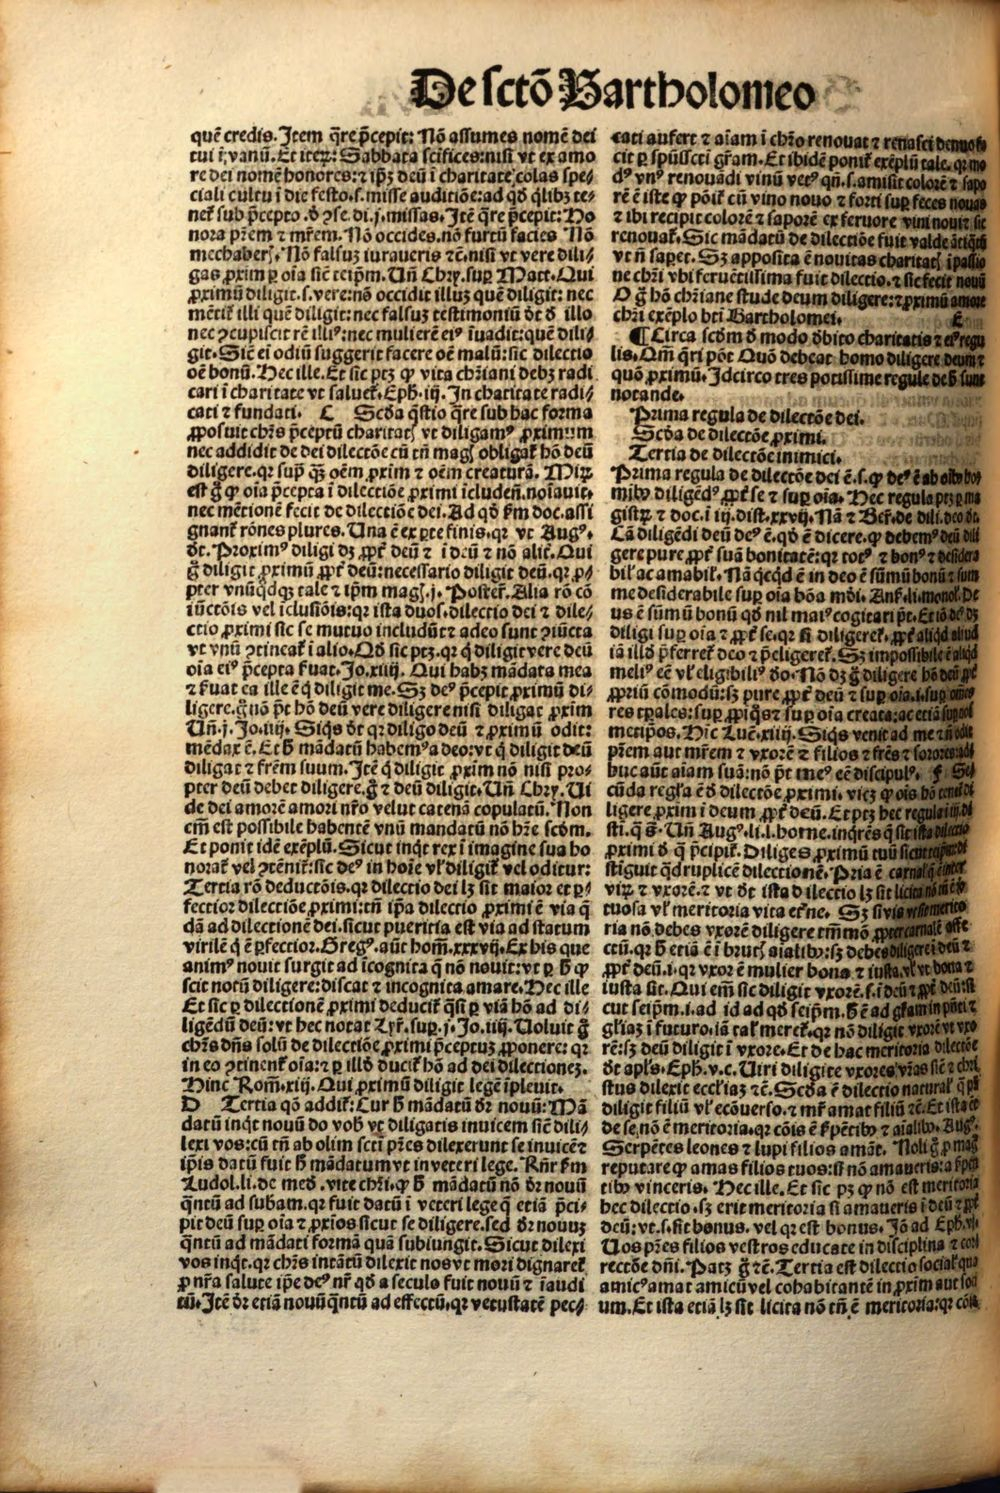 De sctō Bartholomeo
quē credis. Item q̄re p̄cepit: Nō assumes nomē dei
tui ī vanū. Et iteꝝ: Sabbata scīfices: nisi vt ex amo
re dei nomē honores: ⁊ ip̄ꝫ deū ī charitate colas spe⸗
ciali cultu ī die festo. s. misse auditiōe: ad qď q̄libꝫ te⸗
net᷑ sub p̄cepto. Itē q̄re p̄cepit: Ho
nora pr̄em ⁊ mr̄em. Nō occides. nō furtū facies Nō
mechaberꝭ. Nō falsuꝫ iuraueris ⁊c̄. nisi vt vere dili⸗
gas ꝓxim ꝑ oīa sic̄ teip̄m. Uñ Chry. suꝑ Matt. Qui
ꝓximū diligit. s. vere: nō occidit illuꝫ quē diligit: nec
mētit᷑ illi quē diligit: nec falsuꝫ testimoniū ďt ď illo
nec ꝯcupiscit rē illiꝰ: nec mulierē eiꝰ īuadit: quē dili⸗
git. Sic̄ eī odiū suggerit facere oē malū: sic dilectio
oē bonū. Hec ille. Et sic ptꝫ ꝙ vita chr̄iani debꝫ radi
cari ī charitate vt saluet᷑. Eph̄. iij. In charitate radi⸗
cati ⁊ fundati. C Scďa q̄stio q̄re sub hac forma
ꝓposuit chr̄s p̄ceptū charitatꝭ vt diligamꝰ ꝓximum
nec addidit de dei dilectōe cū tn̄ magꝭ obligat᷑ hō deū
diligere. qꝛ sup̄ oēm ꝓxim ⁊ oēm creaturā. Miꝝ
est ḡ ꝙ oīa p̄cepta ī dilectiōe ꝓximi īcluden̄. noīauit.
nec mētionē fecit de dilectiōe dei. Ad qď ẜm doc. assi
gnant᷑ rōnes plures. Una ē ex ꝑte finis. qꝛ vt Augꝰ.
ďt. Proximꝰ diligi dꝫ ꝓpt᷑ deū ⁊ ī deū ⁊ nō alit᷑. Qui
ḡ diligit ꝓximū ꝓpt᷑ deū: necessario diligit deū. qꝛ ꝓ⸗
pter vnūqďqꝫ tale ⁊ ip̄m magꝭ. j. Poster᷑. Alia rō cō
iūctōis vel īclusiōis: qꝛ ista duos. dilectio dei ⁊ dile⸗
ctio ꝓximi sic se mutuo includūt ⁊ adeo sunt ꝯiūcta
vt vnū ꝯtineat᷑ ī alio. Qď sic ptꝫ. qꝛ q̄ diligit vere deū
oīa eiꝰ p̄cepta ẜuat. Jo. xiiij. Qui habꝫ mādata mea
⁊ ẜuat ea ille ē q̄ diligit me. Sꝫ deꝰ p̄cepit ꝓximū di⸗
ligere. q̄ nō p̄t hō deū vere diligere nisi diligat ꝓxim
Uñ. j. Jo. iiij. Siq̄s ďt qꝛ diligo deū ⁊ ꝓximū odit:
mēdax ē. Et ꝱ mādatū habemꝰ a deo: vt q̄ diligit deū
diligat ⁊ fr̄em suum. Itē q̄ diligit ꝓxim nō nisi pro⸗
pter deū debet diligere. ḡ ⁊ deū diligit. Uñ Chry. Ui
de dei amorē amori nr̄o velut catenā copulatū. Non
em̄ est possibile habentē vnū mandatū nō hr̄e scďm.
Et ponit idē exēplū. Sicut inqt rex ī imagine sua ho
norat᷑ vel ꝯtēnit᷑: sic deꝰ in hoīe vl̓ diligit᷑ vel oditur:
Tertia rō deductōis. qꝛ dilectio dei lꝫ sit maior et ꝑ⸗
fectior dilectiōe ꝓximi: tn̄ ip̄a dilectio ꝓximi ē via q̄
dā ad dilectionē dei. sicut pueritia est via ad statum
virilē q̄ ē ꝑfectior. Gregꝰ. aūt hom̄. xxxvij. Ex his que
animꝰ nouit surgit ad īcognita q̄ nō nouit: vt ꝑ ꝱ ꝙ
scit notū diligere: discat ⁊ incognita amare. Hec ille
Et sic ꝑ dilectionē ꝓximi deducit᷑ q̄si ꝑ viā hō ad di⸗
ligēdū deū: vt hec notat Lyr᷑. suꝑ. j. Jo. iiij. Uoluit ḡ
chr̄s dn̄s solū de dilectiōe ꝓximi p̄ceptuꝫ ꝓponere: qꝛ
in eo ꝯtinent᷑ oīa: ⁊ ꝑ illď ducit᷑ hō ad dei dilectioneꝫ.
Hinc Rom̄. xiij. Qui ꝓximū diligit legē īpleuit.
D Tertia qō addit᷑: Cur ꝱ mādatū ďr nouū: Mā
datū inqt nouū do vob̄ vt diligatis inuicem sic̄ dili⸗
lexi vos: cū tn̄ ab olim scti pr̄es dilexerunt se inuicē ⁊
ip̄is datū fuit ꝱ mādatum vt in veteri lege. Rn̄r ẜm
Ludol. li. de med̄. vite chr̄i. ꝙ ꝱ mādatū nō ďr nouū
q̄ntū ad subam. qꝛ fuit datū ī veteri lege q̄ etiā p̄ci⸗
pit deū suꝑ oīa ⁊ ꝓxīos sicut se diligere. sed ďr nouuꝫ
q̄ntū ad mādati formā quā subiungit. Sicut dilexi
vos inqt. qꝛ chr̄s intātū dilexit nos vt mori dignaret᷑
ꝓ nr̄a salute ip̄e deꝰ nr̄ qď a seculo fuit nouū ⁊ īaudi
tū. Itē ďr etiā nouū q̄ntū ad effectū. qꝛ vetustatē pec⸗
cati aufert ⁊ aīam ī chr̄o renouat ⁊ renasci denuo fa
cit ꝑ spūssctī gr̄am. Et ibidē ponit᷑ exēplū tale. qꝛ mo
dꝰ vnꝰ renouādi vinū vetꝰ qn̄. s. amisit colorē ⁊ sapo
rē ē iste ꝙ pōit᷑ cū vino nouo ⁊ forti suꝑ feces nouas
⁊ ibi recipit colorē ⁊ saporē ex feruore vini noui ⁊ sic
renouat᷑. Sic mādatū de dilectiōe fuit valde ātiqū
vt n̄ saꝑet. Sꝫ apposita ē nouitas charitatꝭ ī passio
ne chr̄i vbi feruētissima fuit dilectio. ⁊ sic fecit nouū
O ḡ hō chr̄iane stude deum diligere: ⁊ ꝓximū amore
chr̄i exēplo bti Bartholomei. E
¶ Circa scďm ď modo ďbito charitatis ⁊ eiꝰ regu
lis. Qm̄ q̄ri pōt Quō debeat homo diligere deum ⁊
quō ꝓximū. Idcirco tres potissime regule de ꝱ sunt
notande.
Prima regula de dilectōe dei.
Scďa de dilectōe ꝓximi.
Tertia de dilectōe inimici.
Prima regula de dilectōe dei ē. s. ꝙ deꝰ ē ab oībꝰ ho
mibꝰ diligēdꝰ ꝓpt᷑ se ⁊ suꝑ oīa. Hec regula ptꝫ ꝑ ma
gistꝝ ⁊ doc. ī iij. dist. xxvij. Nā ⁊ Ber᷑. de dili. deo ďt.
Cā diligēdi deū deꝰ ē. qď ē dicere. ꝙ debemꝰ deū dili
gere pure ꝓpt᷑ suā bonitatē: qꝛ totꝰ ⁊ bonꝰ ⁊ desidera
bil̓ ac amabil̓. Nā q̄cqd ē in deo ē sūmū bonū ⁊ sum
me desiderabile suꝑ oīa bōa mōi. Ans̄. li. monol. De
us ē sūmū bonū qď nil maiꝰ cogitari p̄t. Et iō deꝰ dꝫ
diligi suꝑ oīa ⁊ ꝓpt᷑ se. qꝛ si diligeret᷑. ꝓpt᷑ aliqd aliud
iā illď p̄ferret᷑ deo ⁊ p̄eligeret᷑. Sꝫ impossibile ē aliqd
meliꝰ eē vl̓ eligibiliꝰ ďo. Nō dꝫ ḡ diligere hō deū ꝓpt᷑
ꝓpriū cōmodū: sꝫ pure ꝓpt᷑ deū ⁊ suꝑ oīa. i. suꝑ omēs
res tꝑales: suꝑ ꝓpiq̄s ⁊ suꝑ oīa creata: ac etiā suꝑ sē
metipos. Hīc Luē. xiiij. Siq̄s venit ad me ⁊ n̄ odit
pr̄em aut mr̄em ⁊ vxorē ⁊ filios ⁊ fr̄es ⁊ sorores: ad
huc aūt aīam suā: nō p̄t meꝰ eē discipulꝰ. F Se⸗
cūda regl̓a ē ď dilectōe ꝓximi. viꝫ ꝙ oīs hō tenet᷑ di
ligere ꝓxim ī deum ꝓpt᷑ deū. Et ptꝫ hec regula
Uñ Augꝰ. li. l. home. inqt
ꝓximi ď q̄ p̄cipit᷑. Diliges ꝓximū tuū sicut teip̄m di
stiguit qďruplicē dilectionē. Pria ē carnal̓ q̄ ē inter
viꝝ ⁊ vxorē. ⁊ vt ďt ista dilectio lꝫ sit licita nō tn̄ ē vir
tuosa vl̓ meritoria vita et̓ne. Sꝫ si vis vt sit merito
ria nō debes vxorē diligere tm̄mō ꝓpter carnalē affe
ctū. qꝛ ꝱ etiā ē ī brutꝭ aīalibꝰ: sꝫ debes diligere ī deū ⁊
ꝓpt᷑ deū. i. qꝛ vxor ē mulier bona ⁊ iusta. vl̓ vt bona ⁊
iusta sit. Qui em̄ sic diligit vxorē. s. ī deū ⁊ ꝓpt᷑ deū: si
cut seip̄m. i. ad id ad qď seip̄m. ꝱ ē ad gr̄am in p̄nti ⁊
gl̓iaꝫ ī futuro. iā tal̓ meret᷑. qꝛ nō diligit vxorē vt vxo
rē: sꝫ deū diligit ī vxore. Et de hac meritoria dilectōe
ďt apl̓s. Eph̄. v. c. Uiri diligite vxores vr̄as sic̄ ⁊ chri
stus dilexit eccl̓iaꝫ ⁊c̄. Scďa ē dilectio natural̓ q̄ pr̄
diligit filiū vl̓ ecōuerso. ⁊ mr̄ amat filiū ⁊c̄. Et ista ēt
de se. nō ē meritoria. qꝛ cōis ē ẜpētibꝰ ⁊ aīalibꝰ. Augꝰ.
Serpētes leones ⁊ lupi filios amāt. Noli ḡ ꝓ mag̓
reputare ꝙ amas filios tuos: si nō amaueris: a ẜpen
tibꝰ vinceris. Hec ille. Et sic pꝫ ꝙ nō est meritoria
hec dilectio. sꝫ erit meritoria si amaueris ī deū ⁊ ꝓpt᷑
deū: vt. s. sit bonus. vel qꝛ est bonus. Jō ad Eph̄. vj.
Uos pr̄es filios vestros educate in disciplina ⁊ cor
rectōe dn̄i. Patꝫ ḡ ⁊c̄. Tertia est dilectio social̓ qua
amicꝰ amat amicū vel cohabitantē in ꝓxim aut soci
um. Et ista etiā lꝫ sit licita nō tn̄ ē meritoria: qꝛ cōis